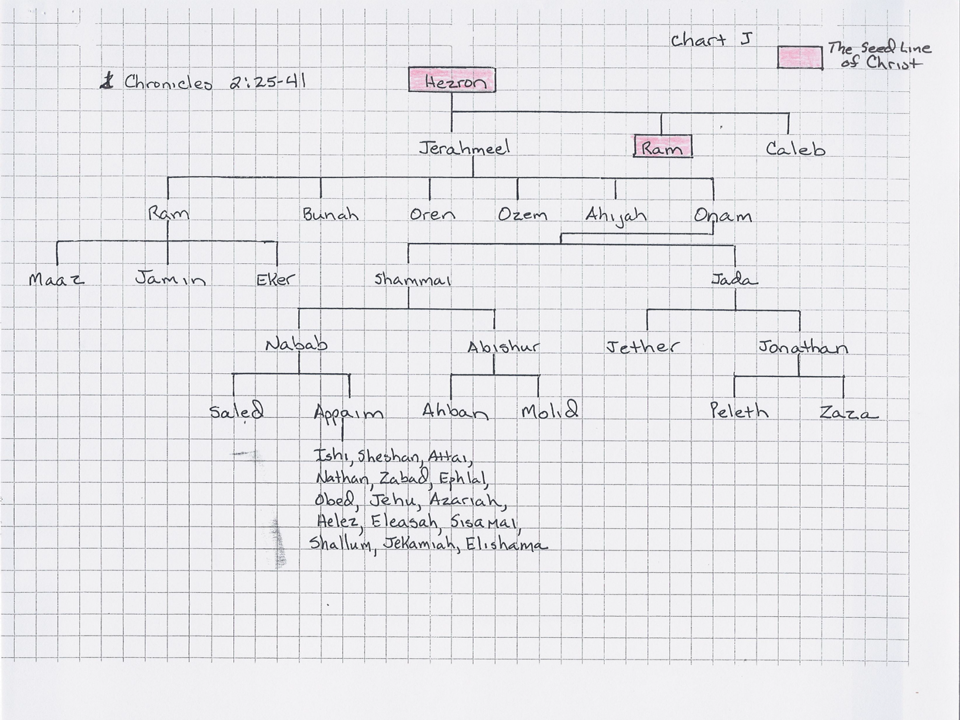 Chart J
The Seed Line
of Christ
1 Chronicles 2:25-41
Hezron
Jerahmeel Ram Caleb
Ram Bunah Oren Ozem Ahijah Onam
Maaz Jamin Eker Shammai Jada
Nabab Abishur Jether Jonathan
Saled Appaim Ahban Molid Peleth Zaza
Ishi, Sheshan, Attai,
Nathan, Zabad, Ephlal,
Obed, Jehu, Azariah,
Helez, Eleasah, Sisamai,
Shallum, Jekamiah, Elishama